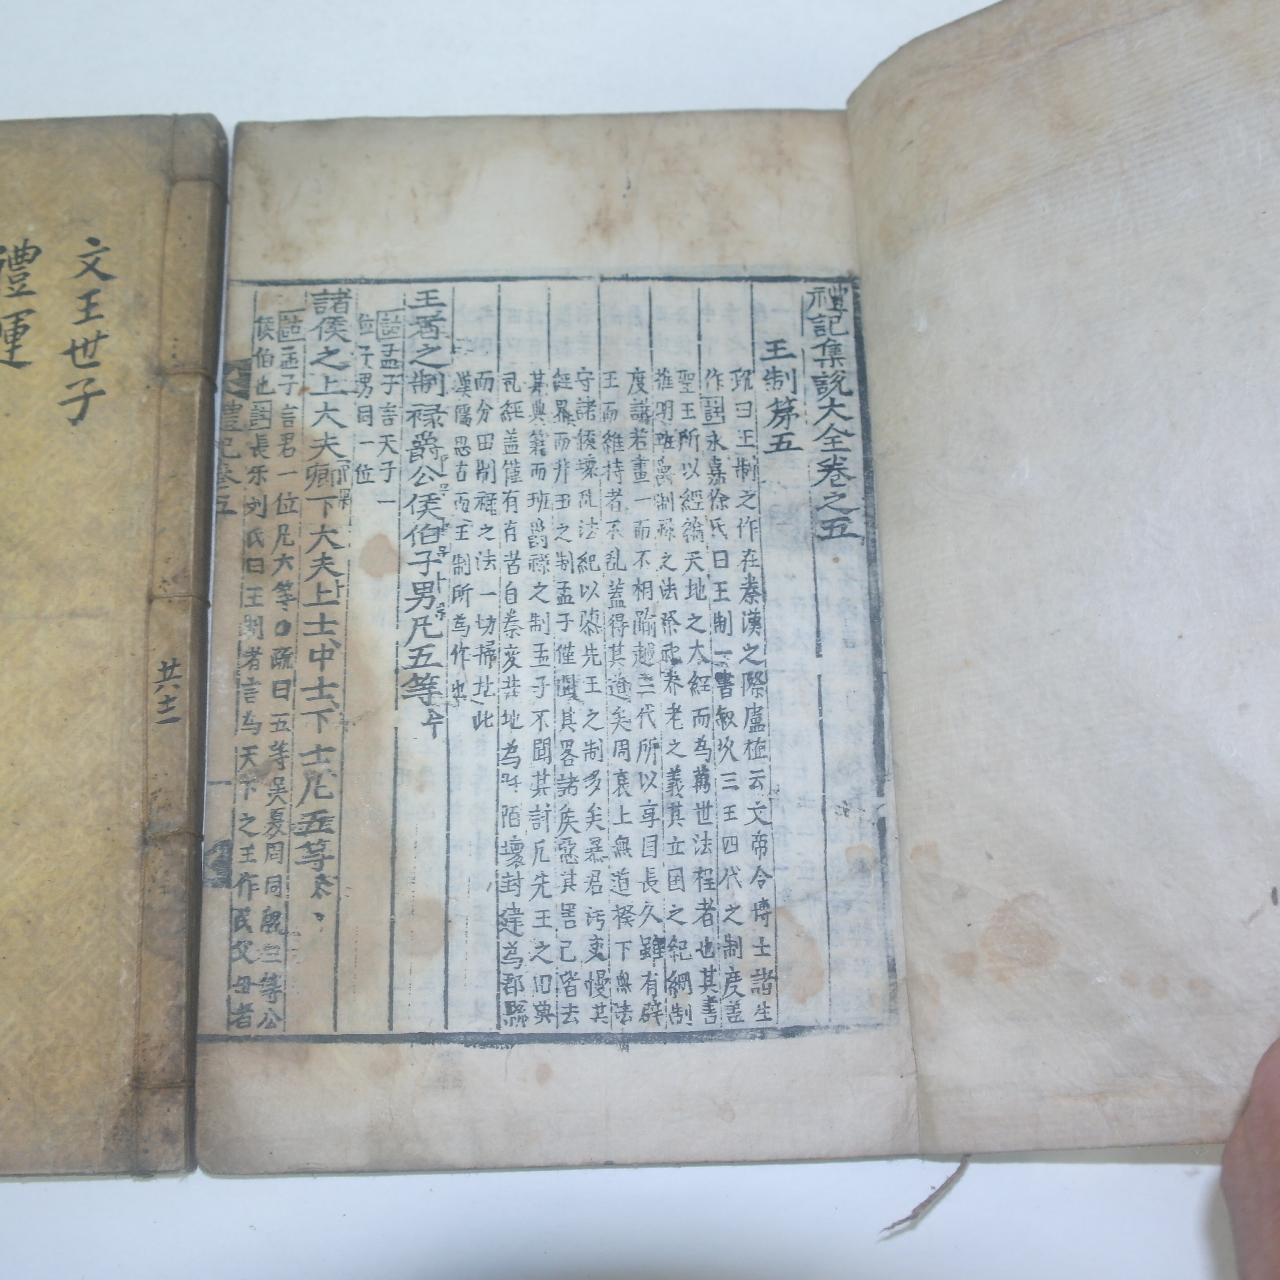 禮記集說大全卷之五
王制第五
疏曰王制之作在秦漢之際盧植云文帝令博士諸生
作註永嘉徐氏曰王制一書叙次三王四代之制度盖
聖王所以經緯天地之大經而為萬世法程者也其書
推明班爵制祿之法祭祀養老之義其立國之紀綱制
度講若畫一而不相踰越三代所以享國長久雖有辟
王而維持者不乱盖得其道矣周衰上無道揆下無法
守諸侯壞乱法紀以隳先王之制多矣暴君汚吏慢其
經界而井田之制孟子僅聞其畧諸侯惡其害己皆去
其典籍而班爵祿之制孟子不聞其詳凡先王之旧典
礼經盖僅有存者自秦変井地為阡陌壞封建為郡縣
而分田制祿之法一切掃地此
漢儒思古而王制所為作也
王者之制祿爵公侯伯子男凡五等
註孟子言天子一
位子男同一位
諸侯之上大夫卿下大夫上士中士下士凡五等
註孟子言君一位凡六等○疏曰五等吳夏周同殷三等公
侯伯也註長乐刘氏曰王制者言為天下之王作民父母者
禮記卷五
一
文王世子
禮運
共十二